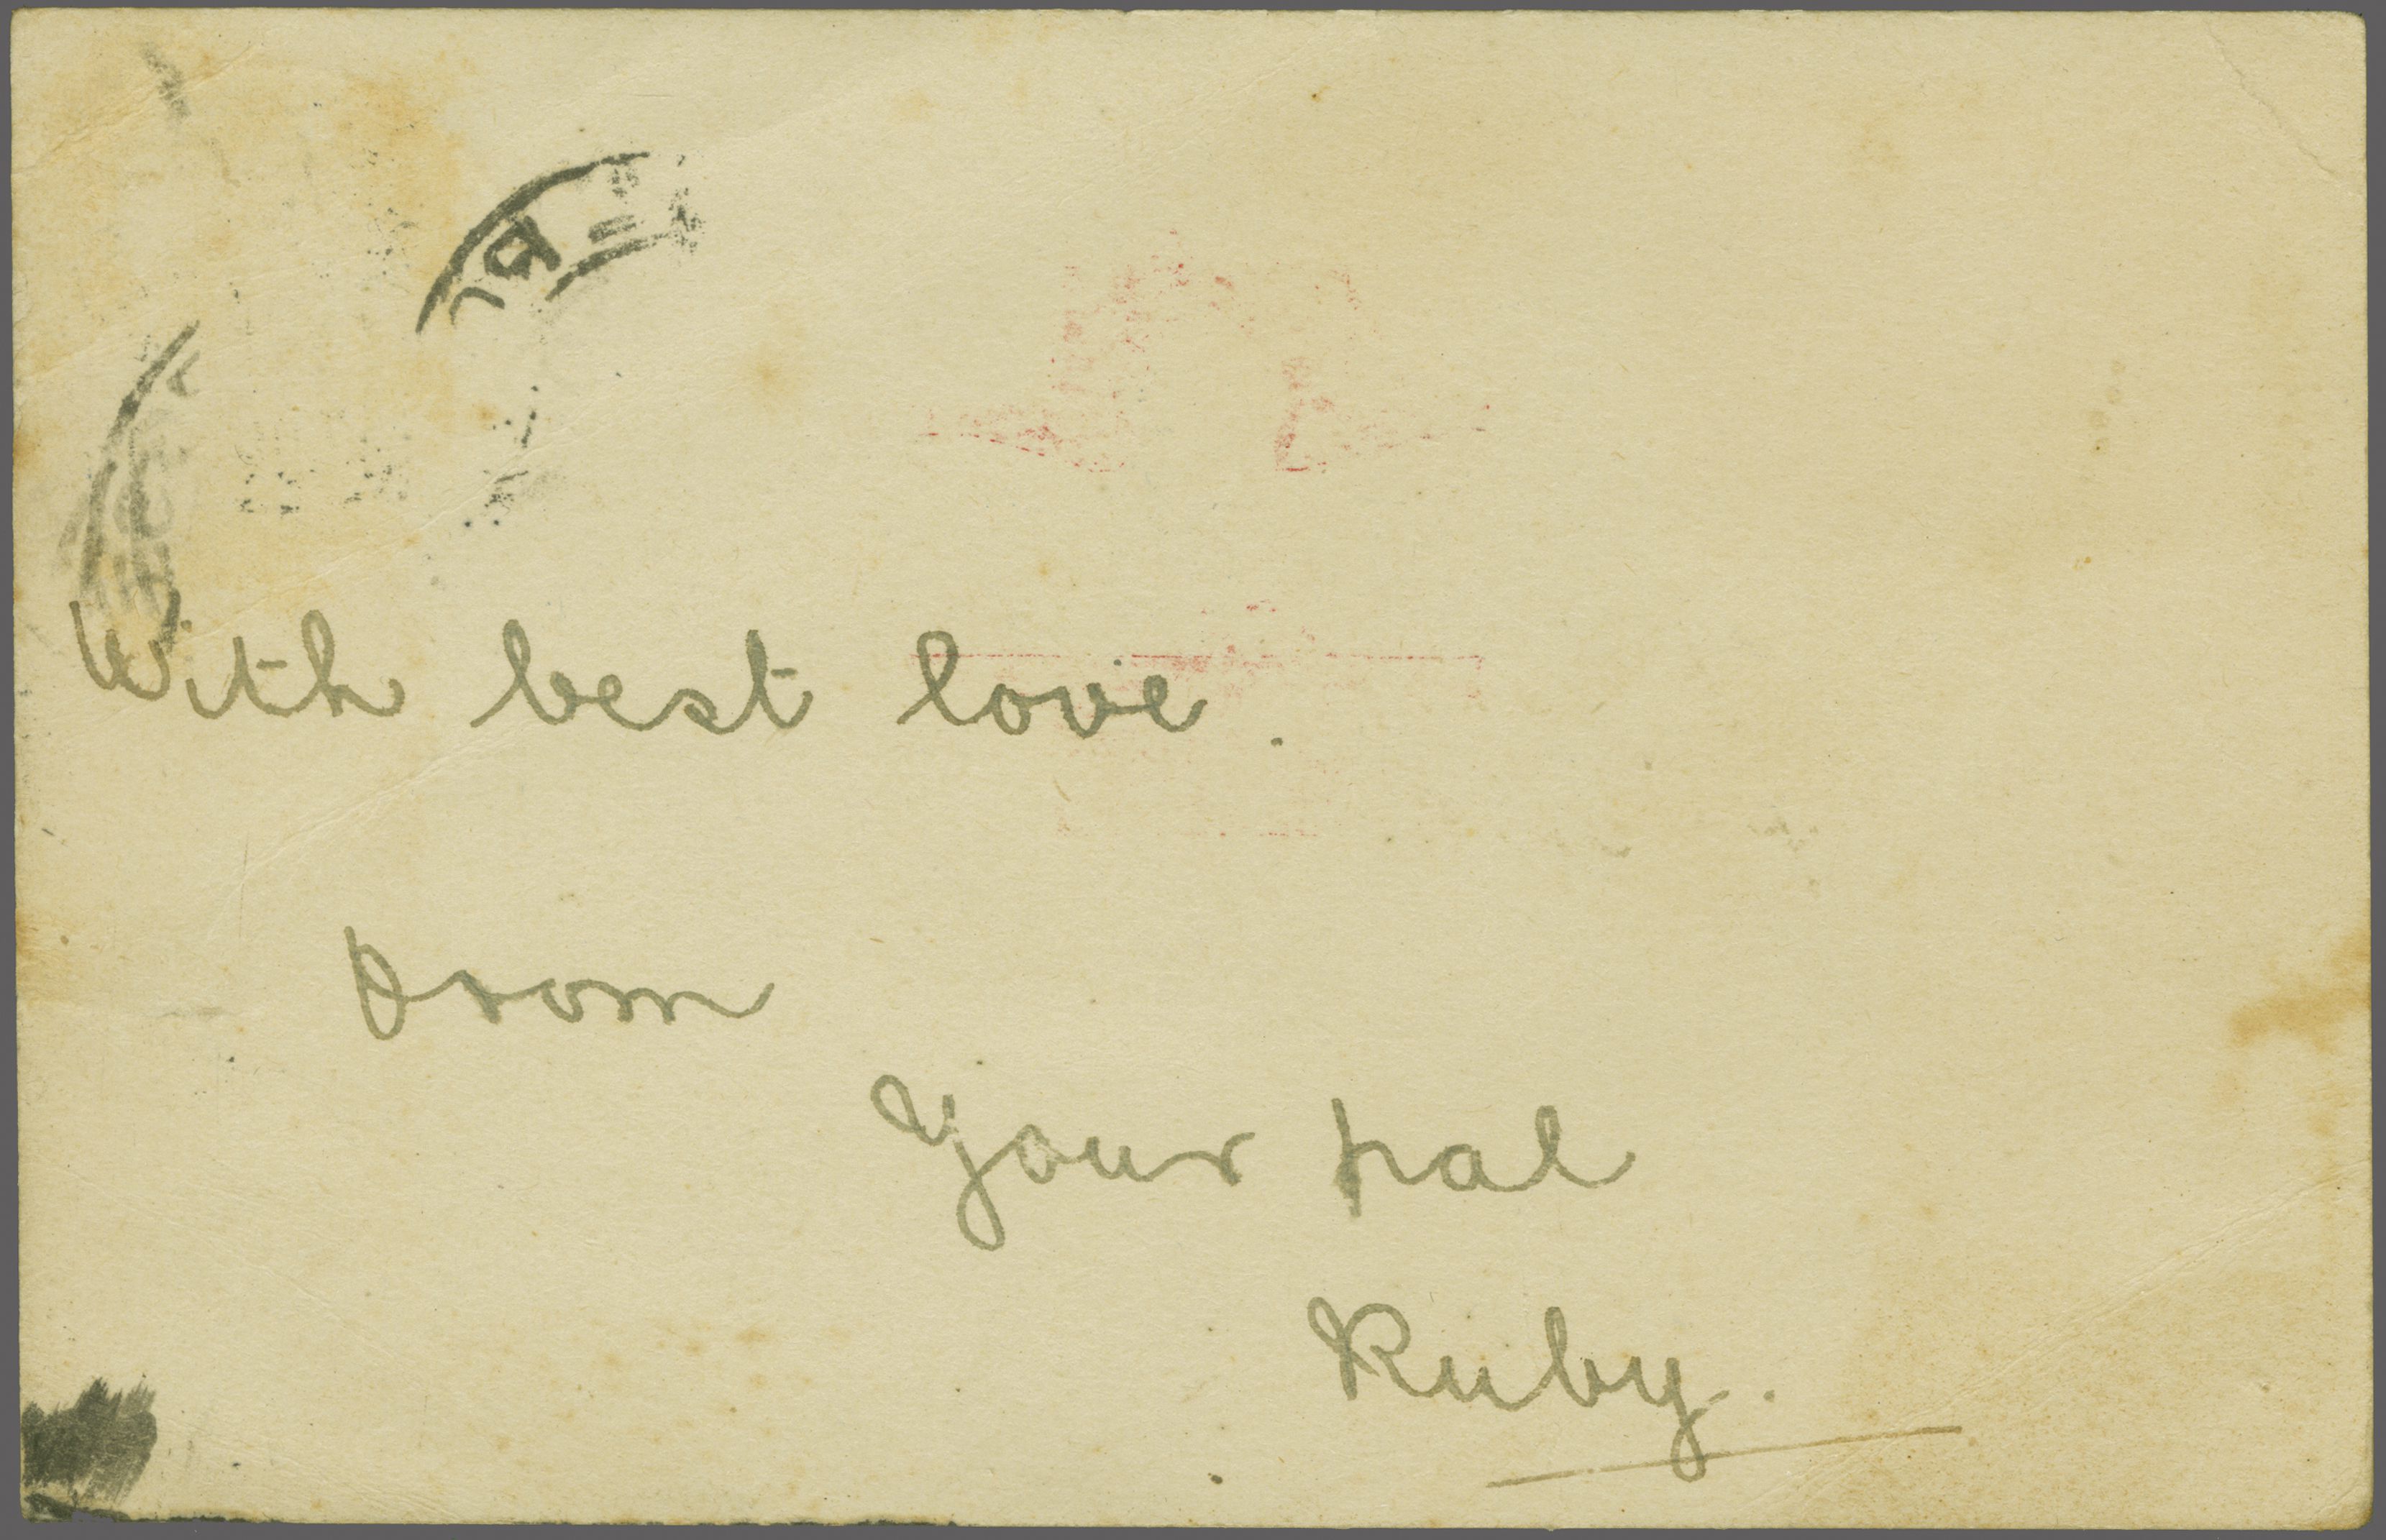 With best love.
from
Your pal
Ruby.